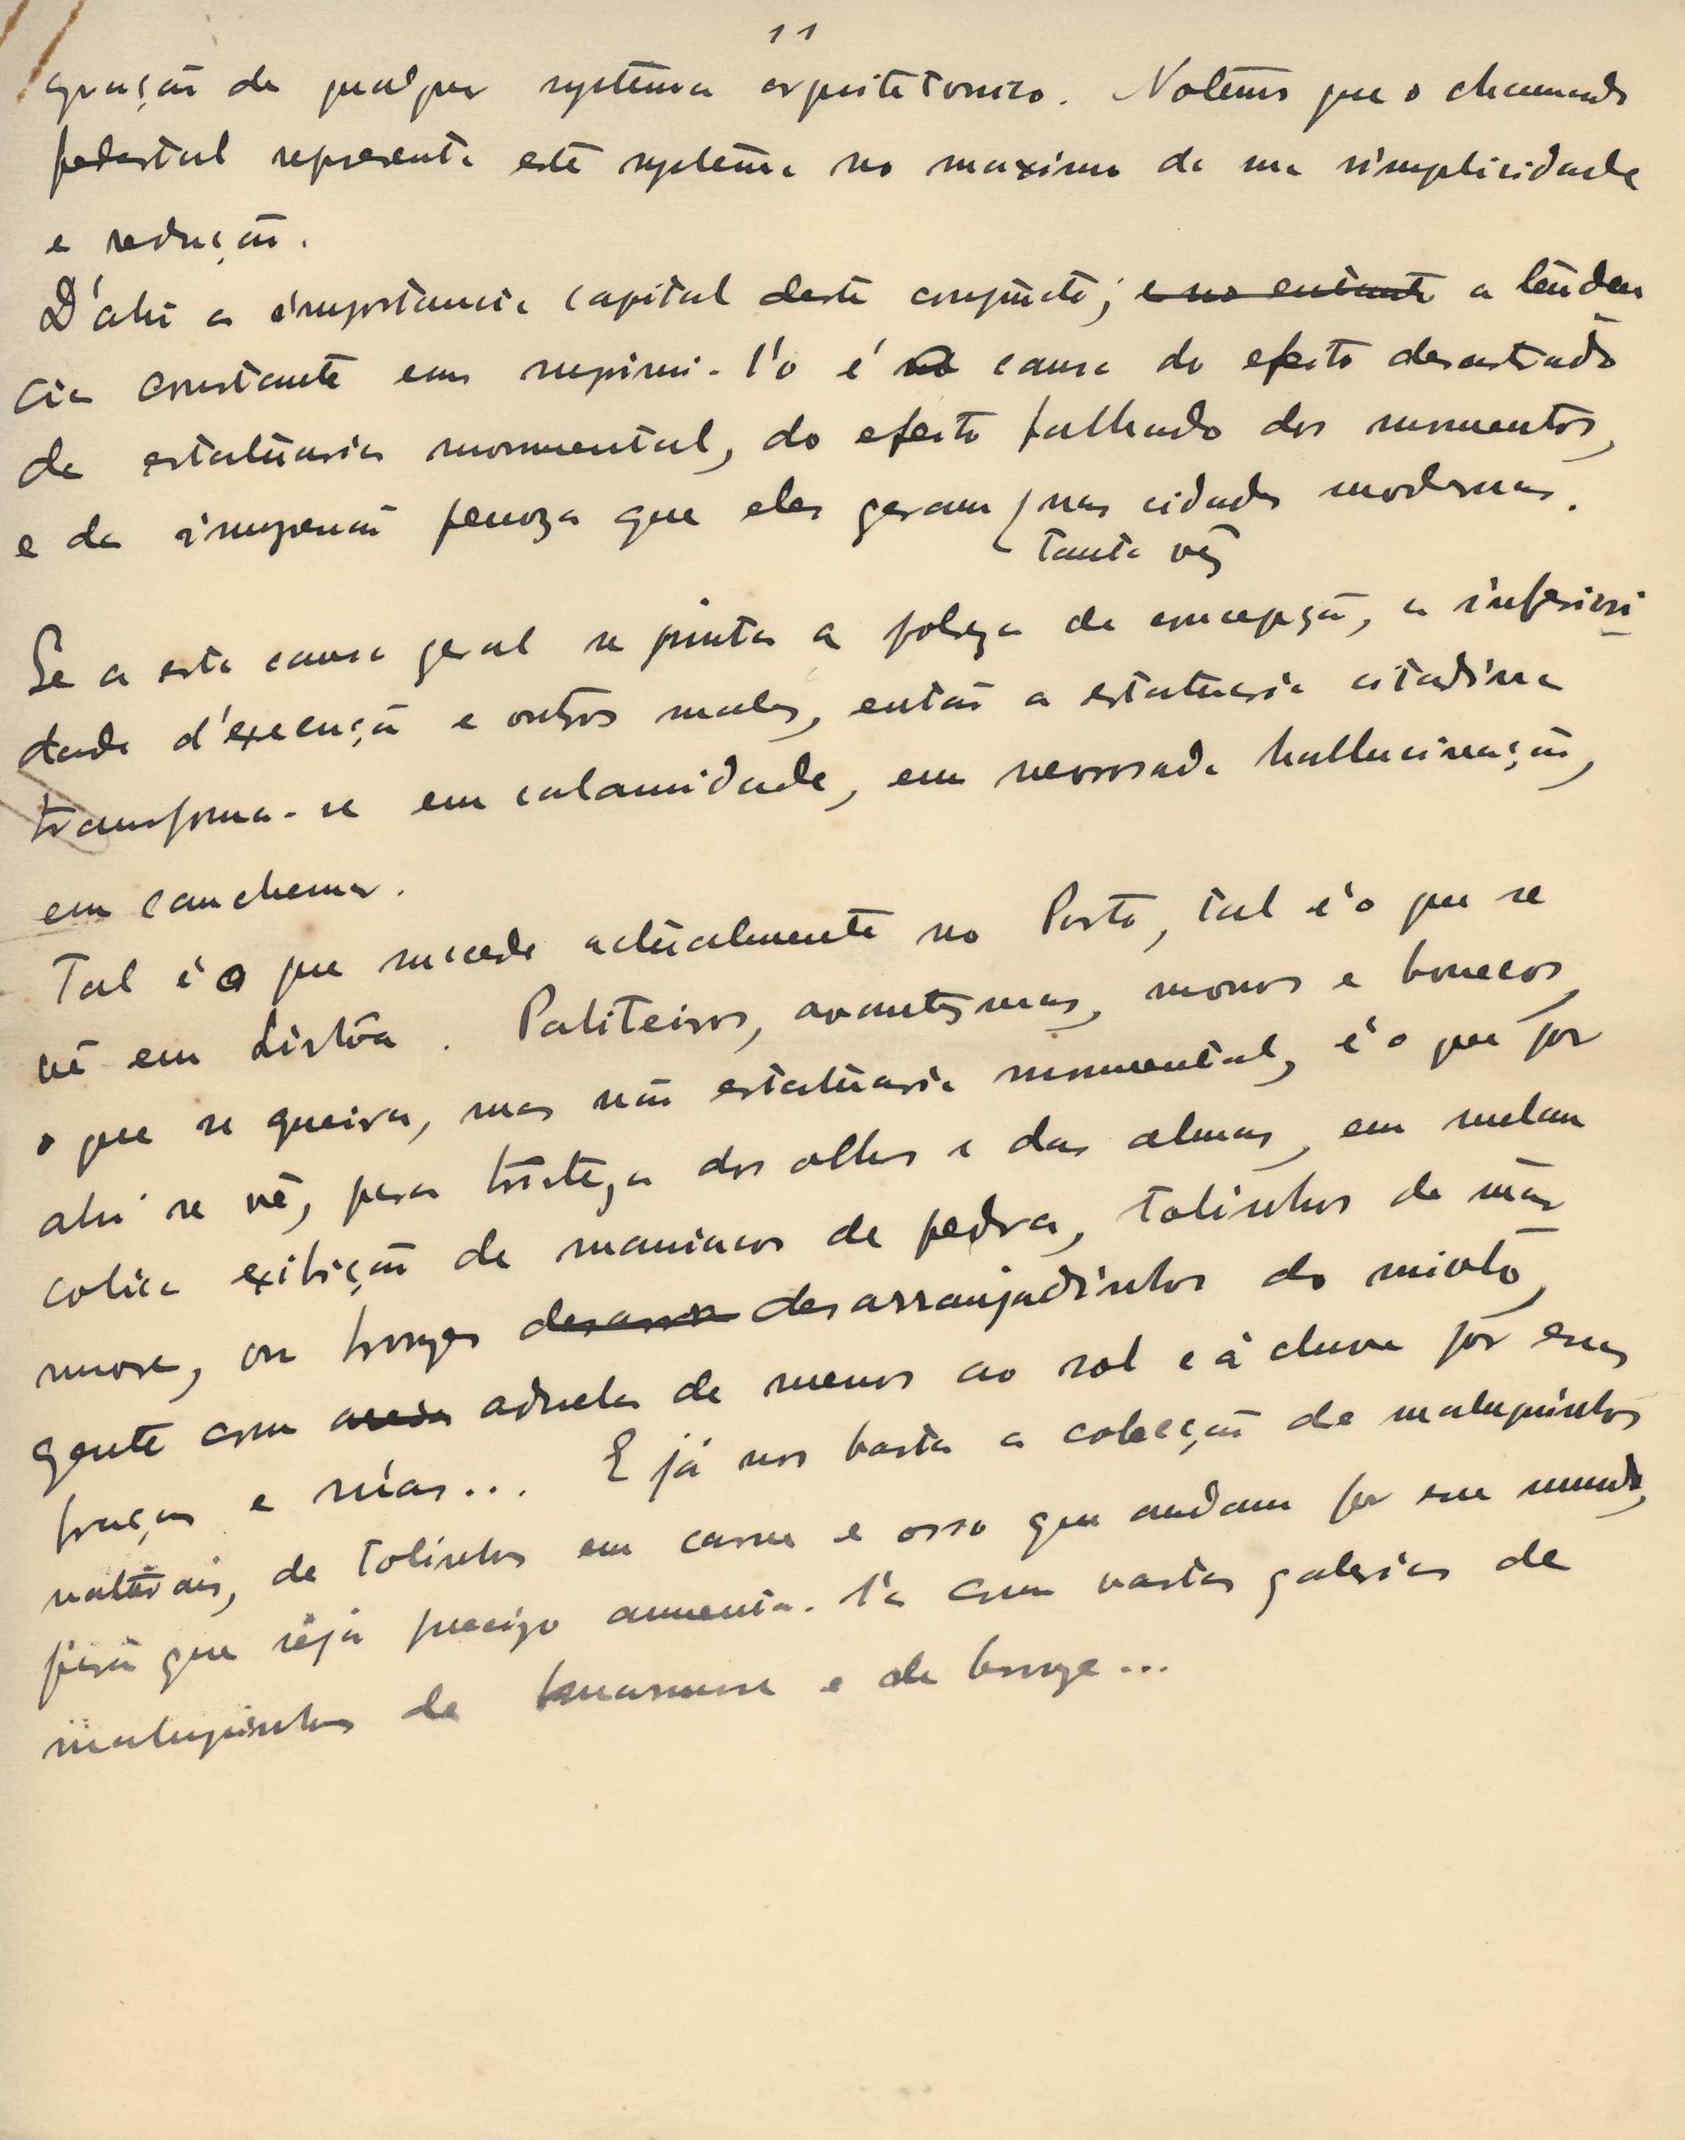 11
egração de qualquer systema arquitetonico. Notemos que o chamado
pedestal representa este systema no maximo da sua simplicidade
e redução.
D'ahi a importancia capital deste conjuncto; e no entanto a tenden
cia constante em suprimi-l'o é a causa do efeito desastrado
da estatuaria monumental, do efeito falhado dos monumentos,
e da impressão penoza que eles geram nas cidades modernas.
tanta vêz
Se a esta causa geral se junta a pobreza da concepção, a inferiori
dade d'execução e outros males, então a estatuaria citadina
transforma-se em calamidade, em nevrosada hallucinação,
em cauchemar.
Tal é o que sucede actualmente no Porto, tal é o que se
vê em Lisbôa. Paliteiros, avantesmas, monos e bonecos,
o que se queira, mas não estatuaria monumental, é o que por
ahi se vê, para tristeza dos olhos e das almas, em melan
colica exibição de maniacos de pedra, tolinhos de már
more, ou bronzes desarranjadinhos do miolo,
gente com aduela de menos ao sol e á chuva por essas
praças e rúas... E já nos basta a colecção de maluquinhos
naturais, de tolinhos em carne e osso que andam por esse mundo,
para que seja precizo aumenta-l'a com vastas galerias de
maluquinhos de marmore e de bronze...